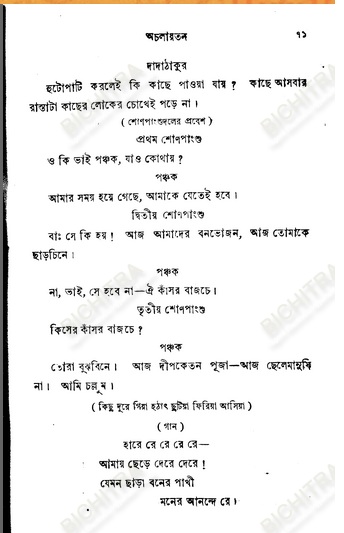 অচলায়তন ৭১
দাদাঠাকুর
হুটোপাটি করলেই কি কাছে পাওয়া যায় ? কাছে আসবার
রাস্তাটা কাছের লোকের চোখেই পড়ে না ।
( শোণপাংশুদলের প্রবেশ )
প্রথম শোণপাংশু
ও কি ভাই পঞ্চক, যাও কোথায় ?
পঞ্চক
আমার সময় হয়ে গেছে, আমাকে যেতেই হবে ।
দ্বিতীয় শোণপাংশু
বাঃ সে কি হয় ! আজ আমাদের বনভোজন, আজ তোমাকে
ছাড়চিনে ।
পঞ্চক
না, ভাই, সে হবে না—ঐ কাঁসর বাজচে ।
তৃতীয় শোণপাংশু
কিসের কাঁসর বাজচে ?
পঞ্চক
তোরা বুঝবিনে । আজ দীপকেতন পূজা—আজ ছেলেমানুষি
না । আমি চল্লুম ।
( কিছু দূরে গিয়া হঠাৎ ছুটিয়া ফিরিয়া আসিয়া )
( গান )
হারে রে রে রে রে—
আমায় ছেড়ে দেরে দেরে !
যেমন ছাড়া বনের পাখী
মনের আনন্দে রে ।
BICHITRA
BICHITRA
BICHITRA
BICHITRA
BICHITRA
BICHITRA